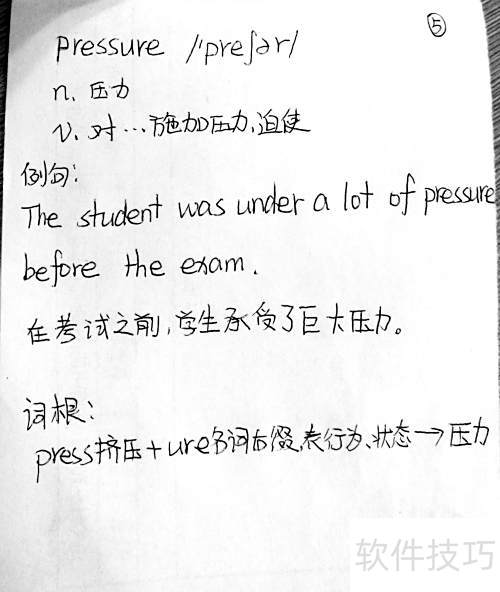 ⑤
pressure /'preʃər/
n. 压力
v. 对…施加压力,迫使
例句:
The student was under a lot of pressure
before the exam.
在考试之前,学生承受了巨大压力。
词根:
press挤压+ure名词后缀,表行为、状态→压力
软件技巧